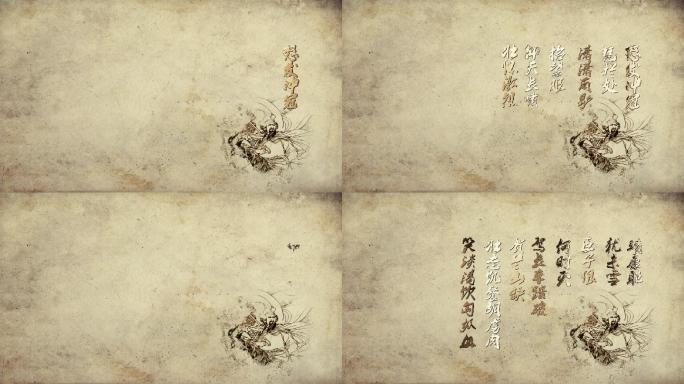 怒发冲冠
怒发冲冠
凭栏处
潇潇雨歇
抬望眼
仰天长啸
壮怀激烈
靖康耻
犹未雪
臣子恨
何时灭
驾长车踏破
贺兰山缺
壮志饥餐胡虏肉
笑谈渴饮匈奴血